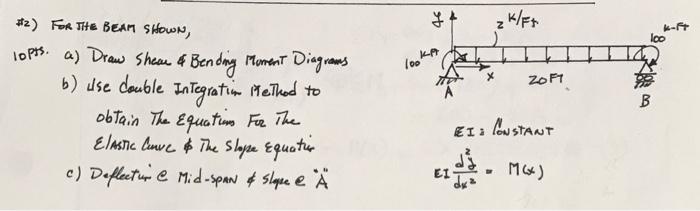 #2) FOR THE BEAM SHOWN,
10 pts. a) Draw Shear & Bending Moment Diagrams
b) Use double Integration Method to
obtain The Equations For The
Elastic Curve & The Slope Equation
c) Deflection @ Mid-span & slope @ "A"
y
2 K/Ft
100 K-Ft
100 K-Ft
x
20 FT
A
B
EI = CONSTANT
EI d²y/dx² = M(x)